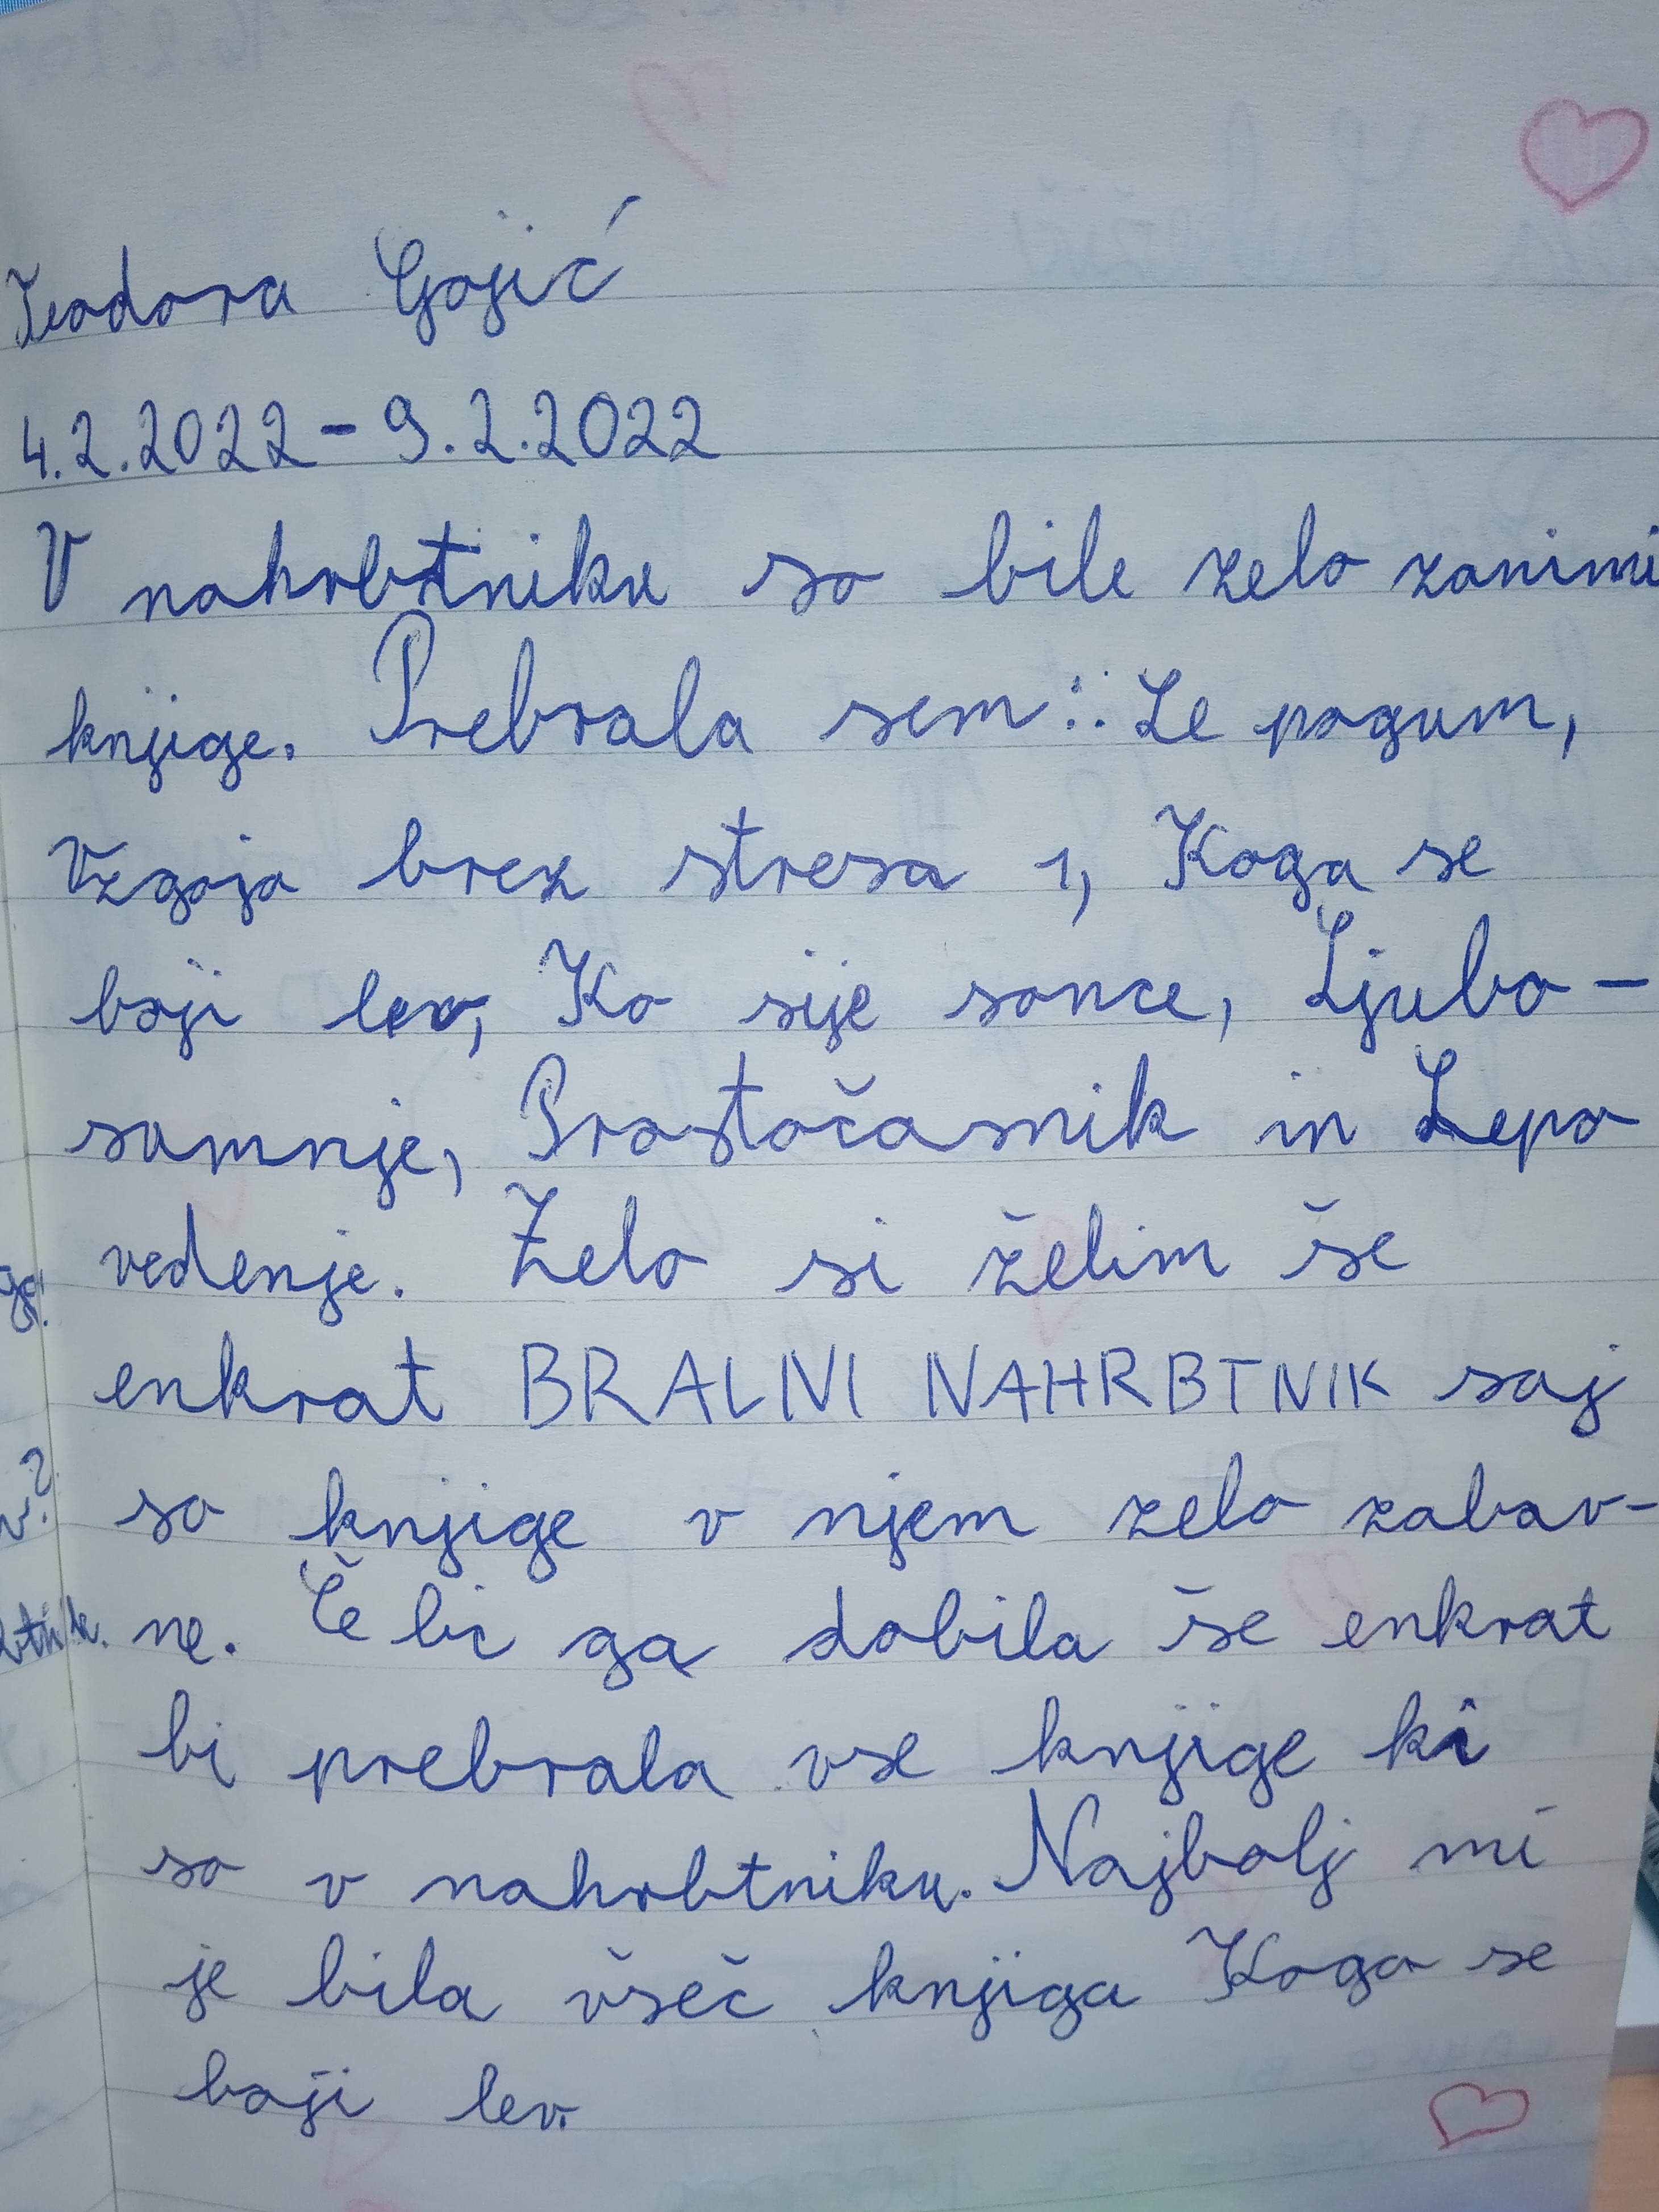 Teodora Gojić
4.2.2022 - 9.2.2022
V nahrbtniku so bile zelo zanimi
knjige. Prebrala sem: Le pogum,
Vzgoja brez stresa 1, Koga se
boji lev, Ko sije sonce, Ljubo-
sumnje, Prostočasnik in Lepo
vedenje. Zelo si želim še
enkrat BRALNI NAHRBTNIK saj
so knjige v njem zelo zabav-
ne. Če bi ga dobila še enkrat
bi prebrala vse knjige ki
so v nahrbtniku. Najbolj mi
je bila všeč knjiga Koga se
boji lev.